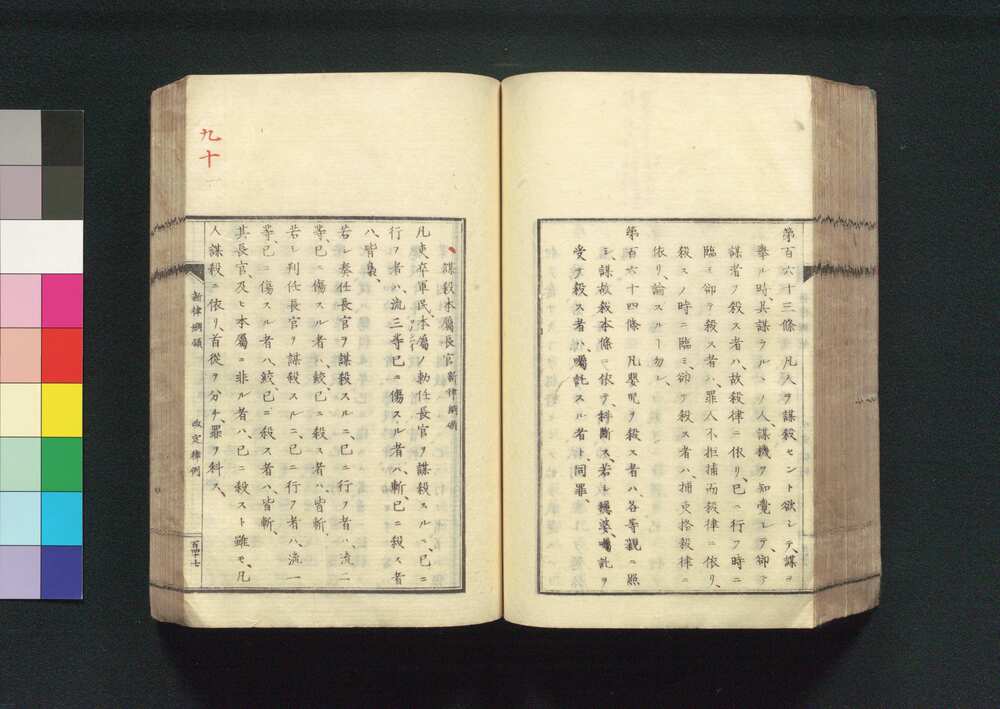 第百六十三條 凡人ヲ謀殺セント欲シテ、謀ヲ
奉ル時、其謀ラルヽノ人、謀機ヲ知覺シテ、卻テ
謀者ヲ殺ス者ハ、故殺律ニ依リ、已ニ行フ時ニ
臨ミ、卻テ殺ス者ハ、罪人不拒捕而殺律ニ依リ、
殺スノ時ニ臨ミ、卻テ殺ス者ハ、捕吏格殺律ニ
依リ、論スルヿ勿レ、
第百六十四條 凡嬰兒ヲ殺ス者ハ、各等親ニ照
シ、謀故殺本條ニ依テ、科斷ス、若シ穩婆、囑託ヲ
受ケ殺ス者ハ、囑託スル者ト同罪、
謀殺本屬長官 新律綱領
凡吏卒軍民、本屬ノ勅任長官ヲ謀殺スルニ、已ニ
行フ者ハ、流三等、已ニ傷スル者ハ、斬、已ニ殺ス者
ハ、皆梟、
若シ奏任長官ヲ謀殺スルニ、已ニ行フ者ハ、流二
等、已ニ傷スル者ハ、絞、已ニ殺ス者ハ、皆斬、
若シ判任長官ヲ謀殺スルニ、已ニ行フ者ハ、流一
等、已ニ傷スル者ハ、絞、已ニ殺ス者ハ、皆斬、
其長官、及ヒ本屬ニ非ル者ハ、已ニ殺スト雖モ、凡
人謀殺ニ依リ、首從ヲ分チ、罪ヲ科ス、
新律綱領 改定律例 百四十七
九十一